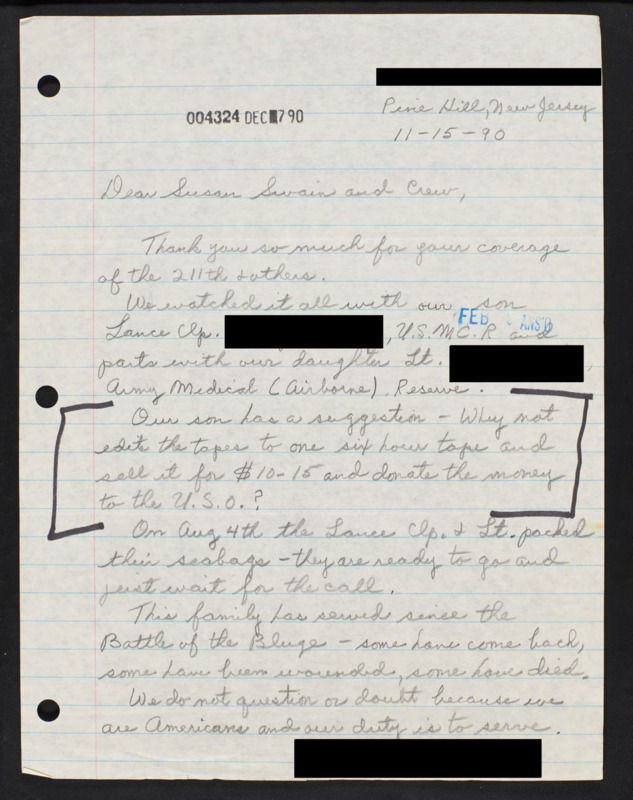 Pine Hill, New Jersey
004324 DEC 7 90
11-15-90
Dear Susan Swain and Crew,
Thank you so much for your coverage
of the 211th & others.
We watched it all with our son
FEB ANS'D
Lance Clp. , U.S.M.C.R and
parts with our daughter Lt. ,
Army Medical (Airborne), Reserve.
Our son has a suggestion – Why not
edit the tapes to one six hour tape and
sell it for $10-15 and donate the money
to the U.S.O.?
On Aug 4th the Lance Clp. & Lt. packed
their seabags – they are ready to go and
just wait for the call.
This family has served since the
Battle of the Bluge – some have come back,
some have been wounded, some have died.
We do not question or doubt because we
are Americans and our duty is to serve.